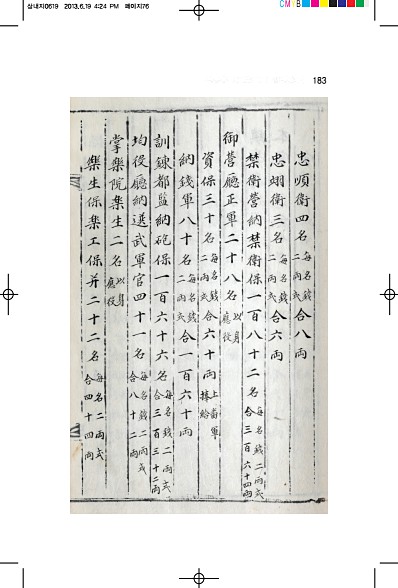 삼내지0619 2013.6.19 4:24 PM 페이지76
183
忠順衛四名 每名錢二兩式 合八兩
忠翊衛三名 每名錢二兩式 合六兩
禁衛營納禁衛保一百八十二名 每名錢二兩式合三百六十四兩
御營廳正軍二十八名 以身應役
資保三十名 每名錢二兩式 合六十兩 上番軍捧給
納錢軍八十名 每名錢二兩式 合一百六十兩
訓鍊都監納砲保一百六十六名 每名錢二兩式合三百三十二兩
均役廳納選武軍官四十一名 每名錢二兩式合八十二兩
掌樂院樂生二名 以身應役
樂生保樂工保并二十二名 每名二兩式合四十四兩